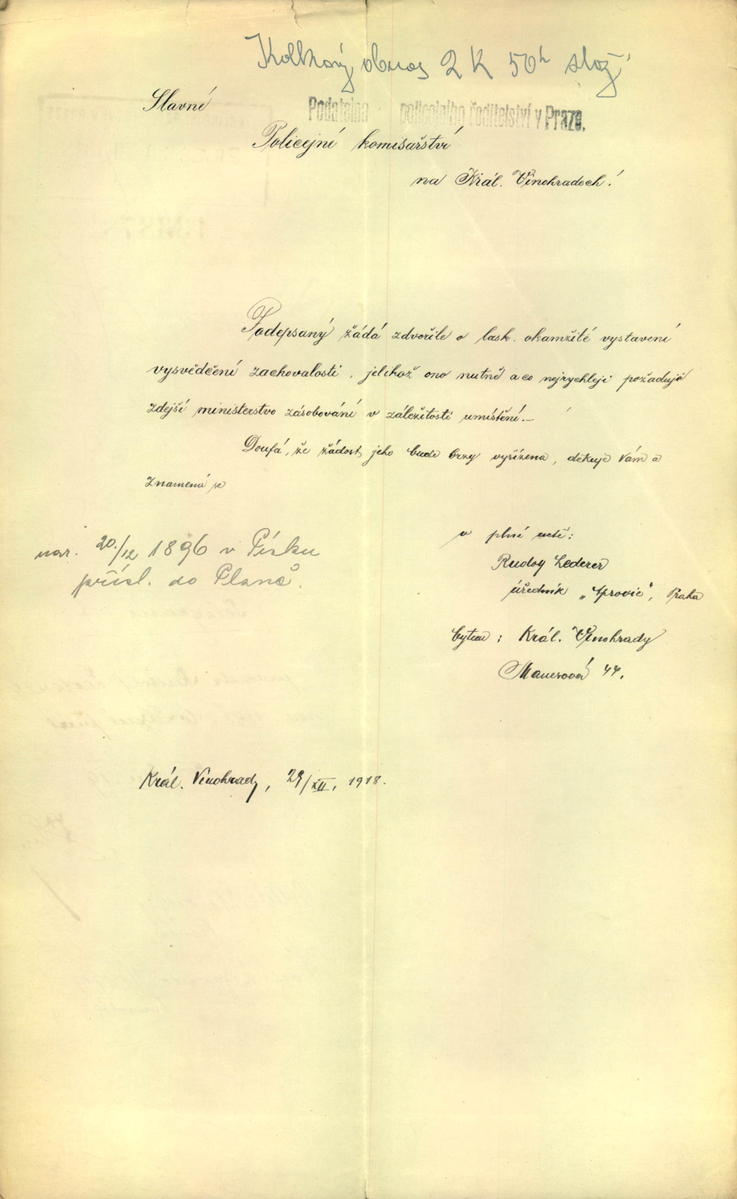 Kolkový obnos 2 K 50h slož.
Podatelna policejního ředitelství v Praze.
Slavné
Policejní komisařství
na Král. Vinohradech!
Podepsaný žádá zdvořile o lask. okamžité vystavení
vysvědčení zachovalosti, jelikož ono nutně a co nejrychleji požaduje
zdejší ministerstvo zásobování v záležitosti umístění.–
Doufá, že žádost jeho bude brzy vyřízena, děkuje Vám a
znamená se
v plné úctě:
Rudolf Lederer
úředník „Aprovic", Praha
bytem: Král. Vinohrady
Manesová 44.
nar. 20./12 1896 v Písku
přísl. do Plané
Král. Vinohrady, 29/XII, 1918.